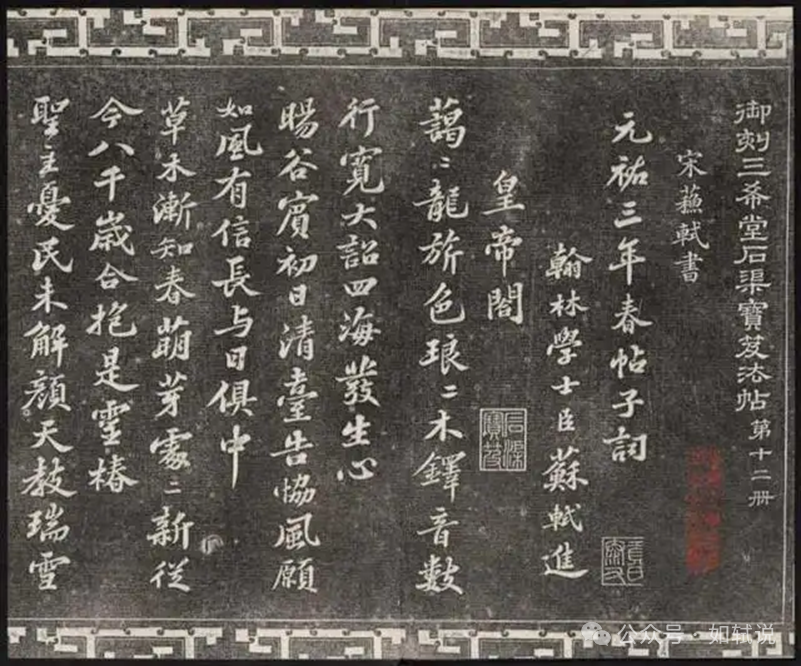 御刻三希堂石渠寶笈法帖第十二册
宋蘇軾書
元祐三年春帖子詞
翰林學士臣蘇軾進
皇帝閣
藹〻龍旂色琅〻木鐸音數
行寬大詔四海發生心
暘谷賓初日清臺告協風願
如風有信長与日俱中
草木漸知春萌芽處〻新從
今八千歲合抱是靈椿
聖主憂民未解顏天教瑞雪
石渠寶笈
公众号 · 如轼说